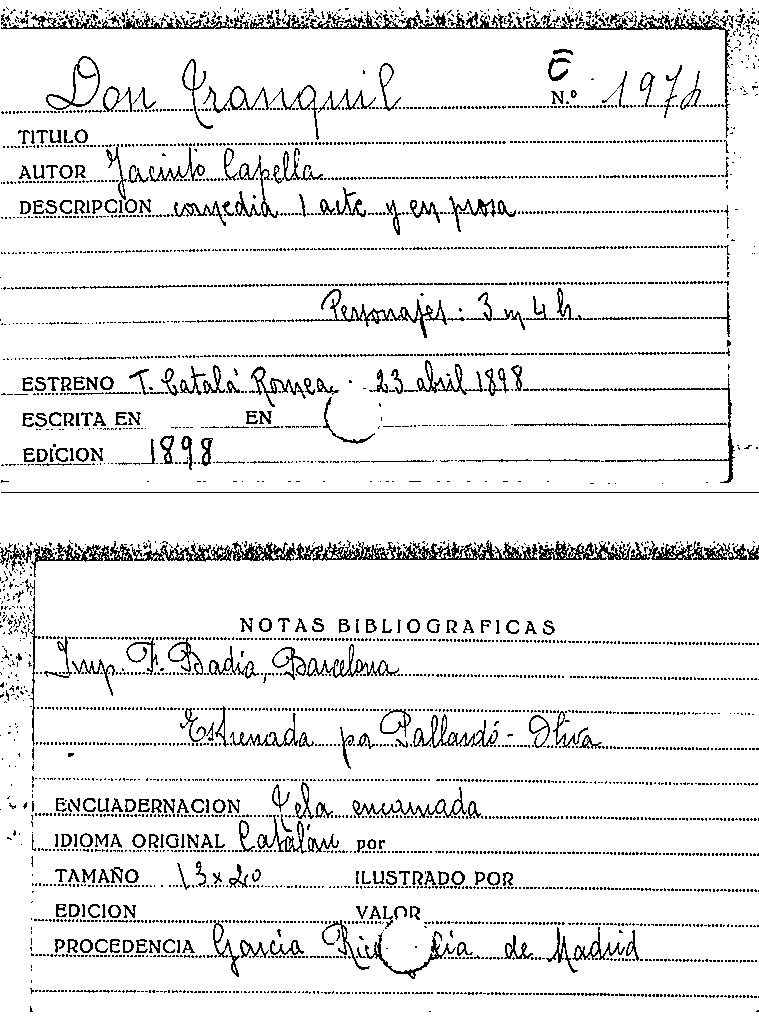 Don Tranquil
C̄
N.º 1974
TITULO
AUTOR Jacinto Capella
DESCRIPCION comedia 1 acte y en prosa
Personajes: 3 m 4 h.
ESTRENO T. Catalá Romea · 23 abril 1898
ESCRITA EN EN
EDICION 1898
NOTAS BIBLIOGRAFICAS
Imp. F. Badia, Barcelona
Estrenada por Pallardó - Oliva
ENCUADERNACION Tela encarnada
IDIOMA ORIGINAL Catalán por
TAMAÑO 13 x 20 ILUSTRADO POR
EDICION VALOR
PROCEDENCIA García Rico de Madrid